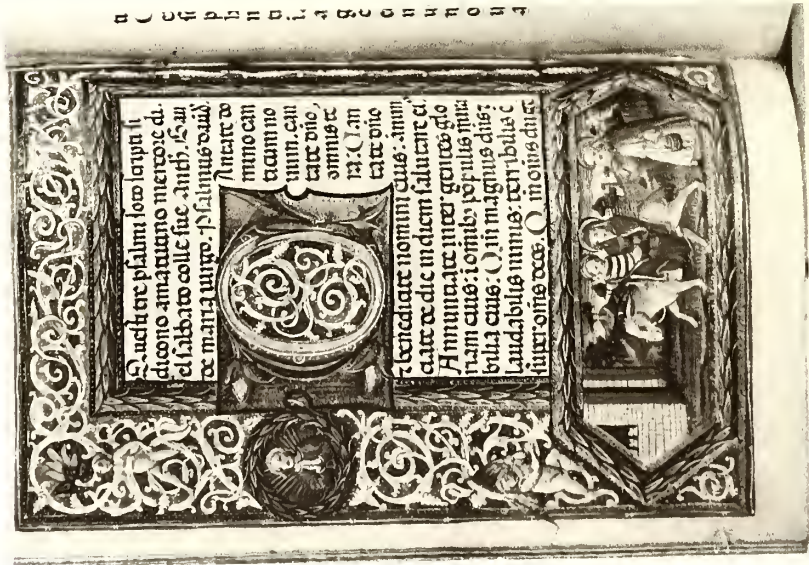 Questi tre psalmi soto scripti si
dicono amartitino mercore di.
el sabbato colle sue Anth. Hau
te maria virgo. Psalmus dauid.
Cantate do
mino can
ticum no
uum. can
tate dño,
omnis te
ra: Can
tate dño
⁊ benedicite nomini eius: anun
ciate de die in diem salutare ei'.
Annunciate inter gentes glo
riam eius: i omnibꝫ populis mira
bilia eius. Qm magnus dñs: ⁊
laudabilis nimis: terribilis ē
super omēs deos. Qm omēs dii gē